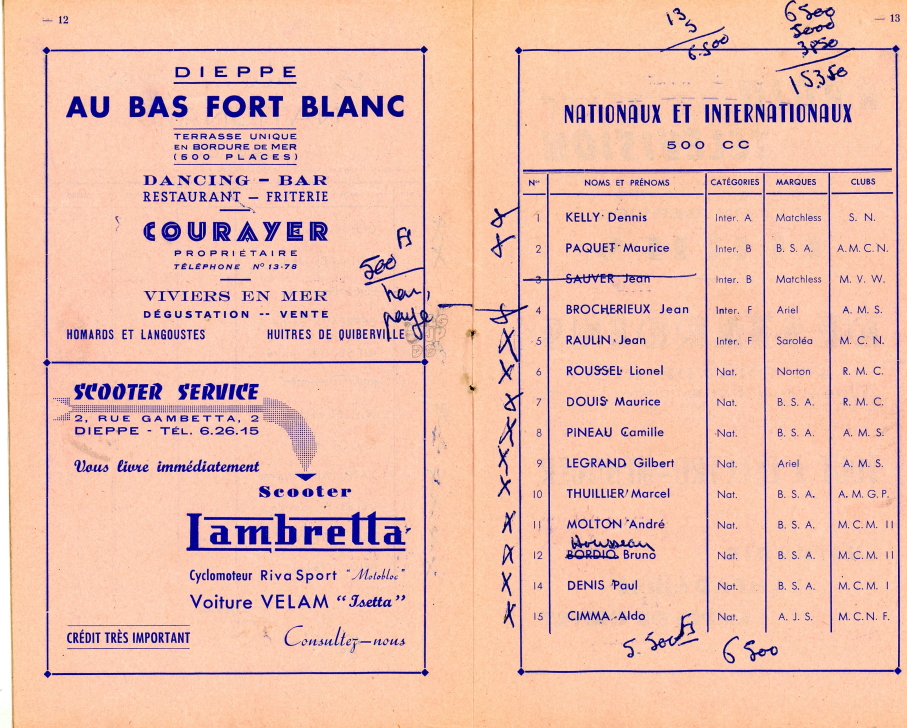 — 12
DIEPPE
AU BAS FORT BLANC
TERRASSE UNIQUE
EN BORDURE DE MER
(500 PLACES)
DANCING – BAR
RESTAURANT – FRITERIE
COURAYER
PROPRIÉTAIRE
TÉLÉPHONE N° 13-78
VIVIERS EN MER
DÉGUSTATION -- VENTE
HOMARDS ET LANGOUSTES HUITRES DE QUIBERVILLE
500 Fs
SCOOTER SERVICE
2, RUE GAMBETTA, 2
DIEPPE - TÉL. 6.26.15
Vous livre immédiatement
Scooter
Lambretta
Cyclomoteur Riva Sport "Motobloc"
Voiture VELAM "Isetta"
CRÉDIT TRÈS IMPORTANT Consultez-nous
— 13
13
5
6.500
6500
5000
3850
15350
NATIONAUX ET INTERNATIONAUX
500 CC
Nos NOMS ET PRÉNOMS CATÉGORIES MARQUES CLUBS
1 KELLY Dennis Inter. A Matchless S. N.
2 PAQUET Maurice Inter. B B. S. A. A. M. C. N.
3 SAUVER Jean Inter. B Matchless M. V. W.
4 BROCHERIEUX Jean Inter. F Ariel A. M. S.
5 RAULIN Jean Inter. F Saroléa M. C. N.
6 ROUSSEL Lionel Nat. Norton R. M. C.
7 DOUIS Maurice Nat. B. S. A. R. M. C.
8 PINEAU Camille Nat. B. S. A. A. M. S.
9 LEGRAND Gilbert Nat. Ariel A. M. S.
10 THUILLIER Marcel Nat. B. S. A. A. M. G. P.
11 MOLTON André Nat. B. S. A. M. C. M. II
Housseau
12 BORDIO Bruno Nat. B. S. A. M. C. M. II
14 DENIS Paul Nat. B. S. A. M. C. M. I
15 CIMMA Aldo Nat. A. J. S. M. C. N. F.
5.500 Fs 6500